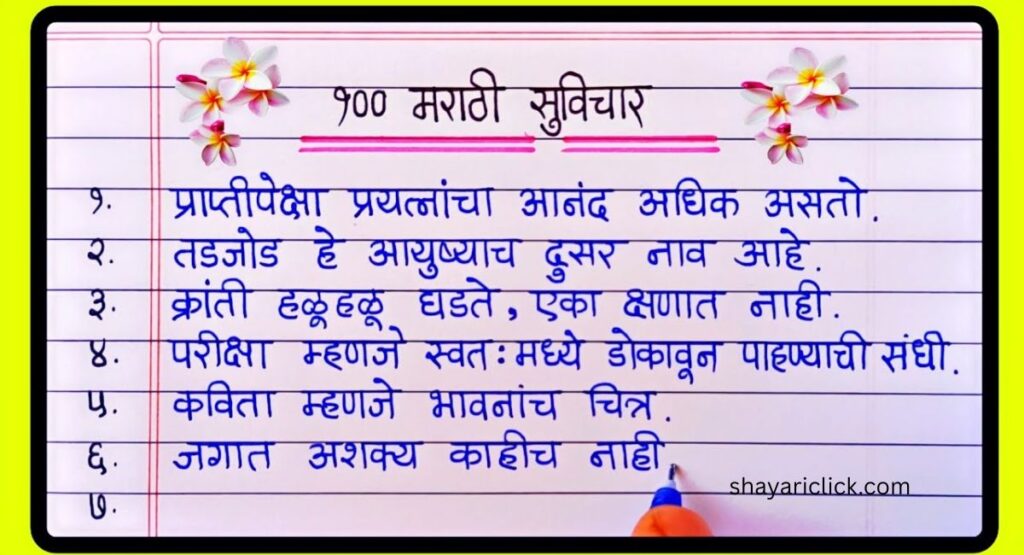 १०० मराठी सुविचार
१. प्राप्तीपेक्षा प्रयत्नांचा आनंद अधिक असतो.
२. तडजोड हे आयुष्याच दुसर नाव आहे.
३. क्रांती हळूहळू घडते, एका क्षणात नाही.
४. परीक्षा म्हणजे स्वतःमध्ये डोकावून पाहण्याची संधी.
५. कविता म्हणजे भावनांच चित्र.
६. जगात अशक्य काहीच नाही.
७.
shayariclick.com